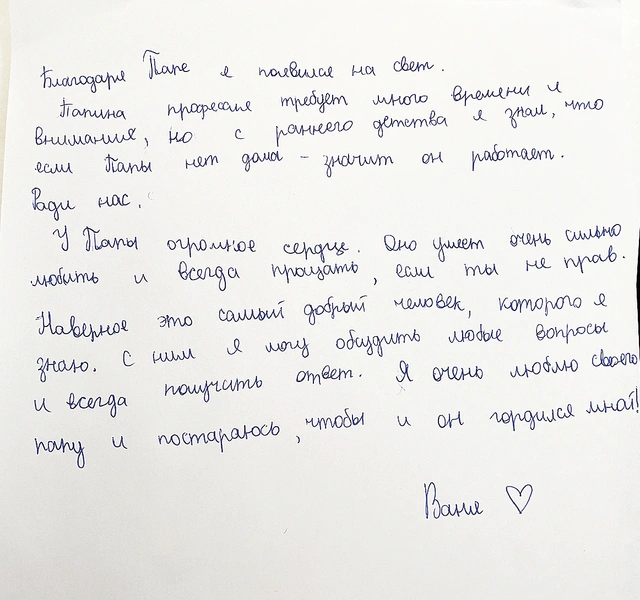 Благодаря Папе я появился на свет.
Папина профессия требует много времени и
внимания, но с раннего детства я знал, что
если Папы нет дома - значит он работает.
Ради нас.
У Папы огромное сердце. Оно умеет очень сильно
любить и всегда прощать, если ты не прав.
Наверное это самый добрый человек, которого я
знаю. С ним я могу обсудить любые вопросы
и всегда получить ответ. Я очень люблю своего
папу и постараюсь, чтобы и он гордился мной!
Ваня ♡